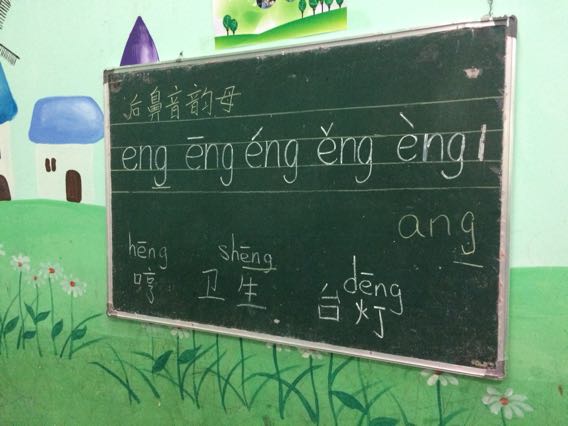 后鼻音韵母
eng ēng éng ěng èng
ang
hēng shēng dēng
哼 卫生 台灯